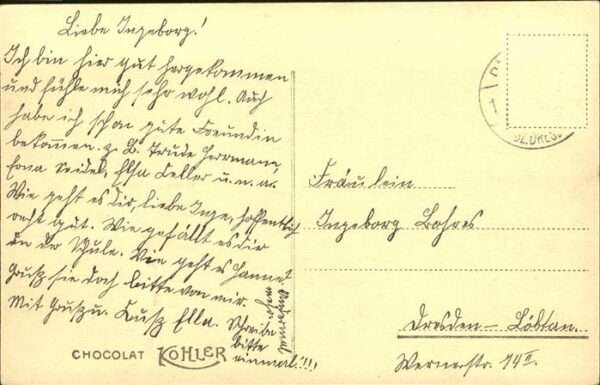 Liebe Ingeborg!
Ich bin hier gut hergekommen
und fühle mich sehr wohl. Auch
habe ich schon gute Freundin
bekommen. z. B. Trude Herrmann,
Erna Seidel, Elsa Keller u.s.w.
Wie geht es Dir, liebe Inge, hoffentlich
recht gut. Wie gefällt es dir
in der Schule. Wie geht es Hanna?
Grüße sie doch bitte von mir.
Mit Gruß u. Kuß Ella. Schreibe
bitte
einmal!!!
CHOCOLAT KOHLER
Fräulein
Ingeborg Bohres
Dresden – Löbtau.
Wernerstr. 14 II.